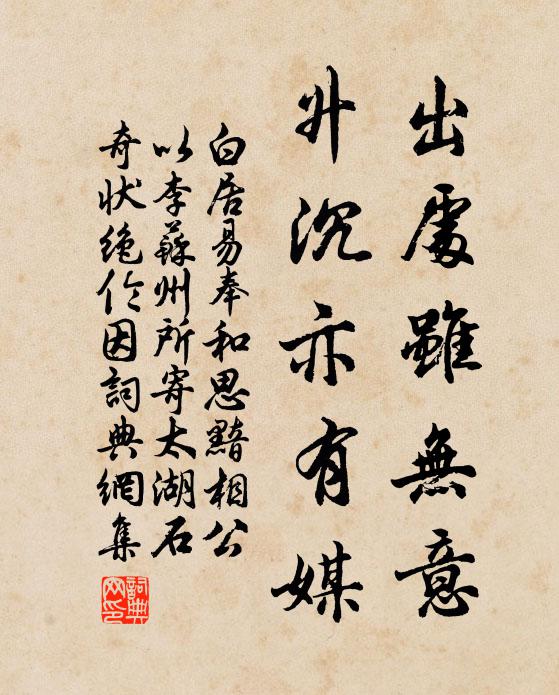 出處雖無意
升沉亦有媒
白居易奉和思黯相公
以李蘇州所寄太湖石
奇狀絶伦因詞典網集
詞典網印